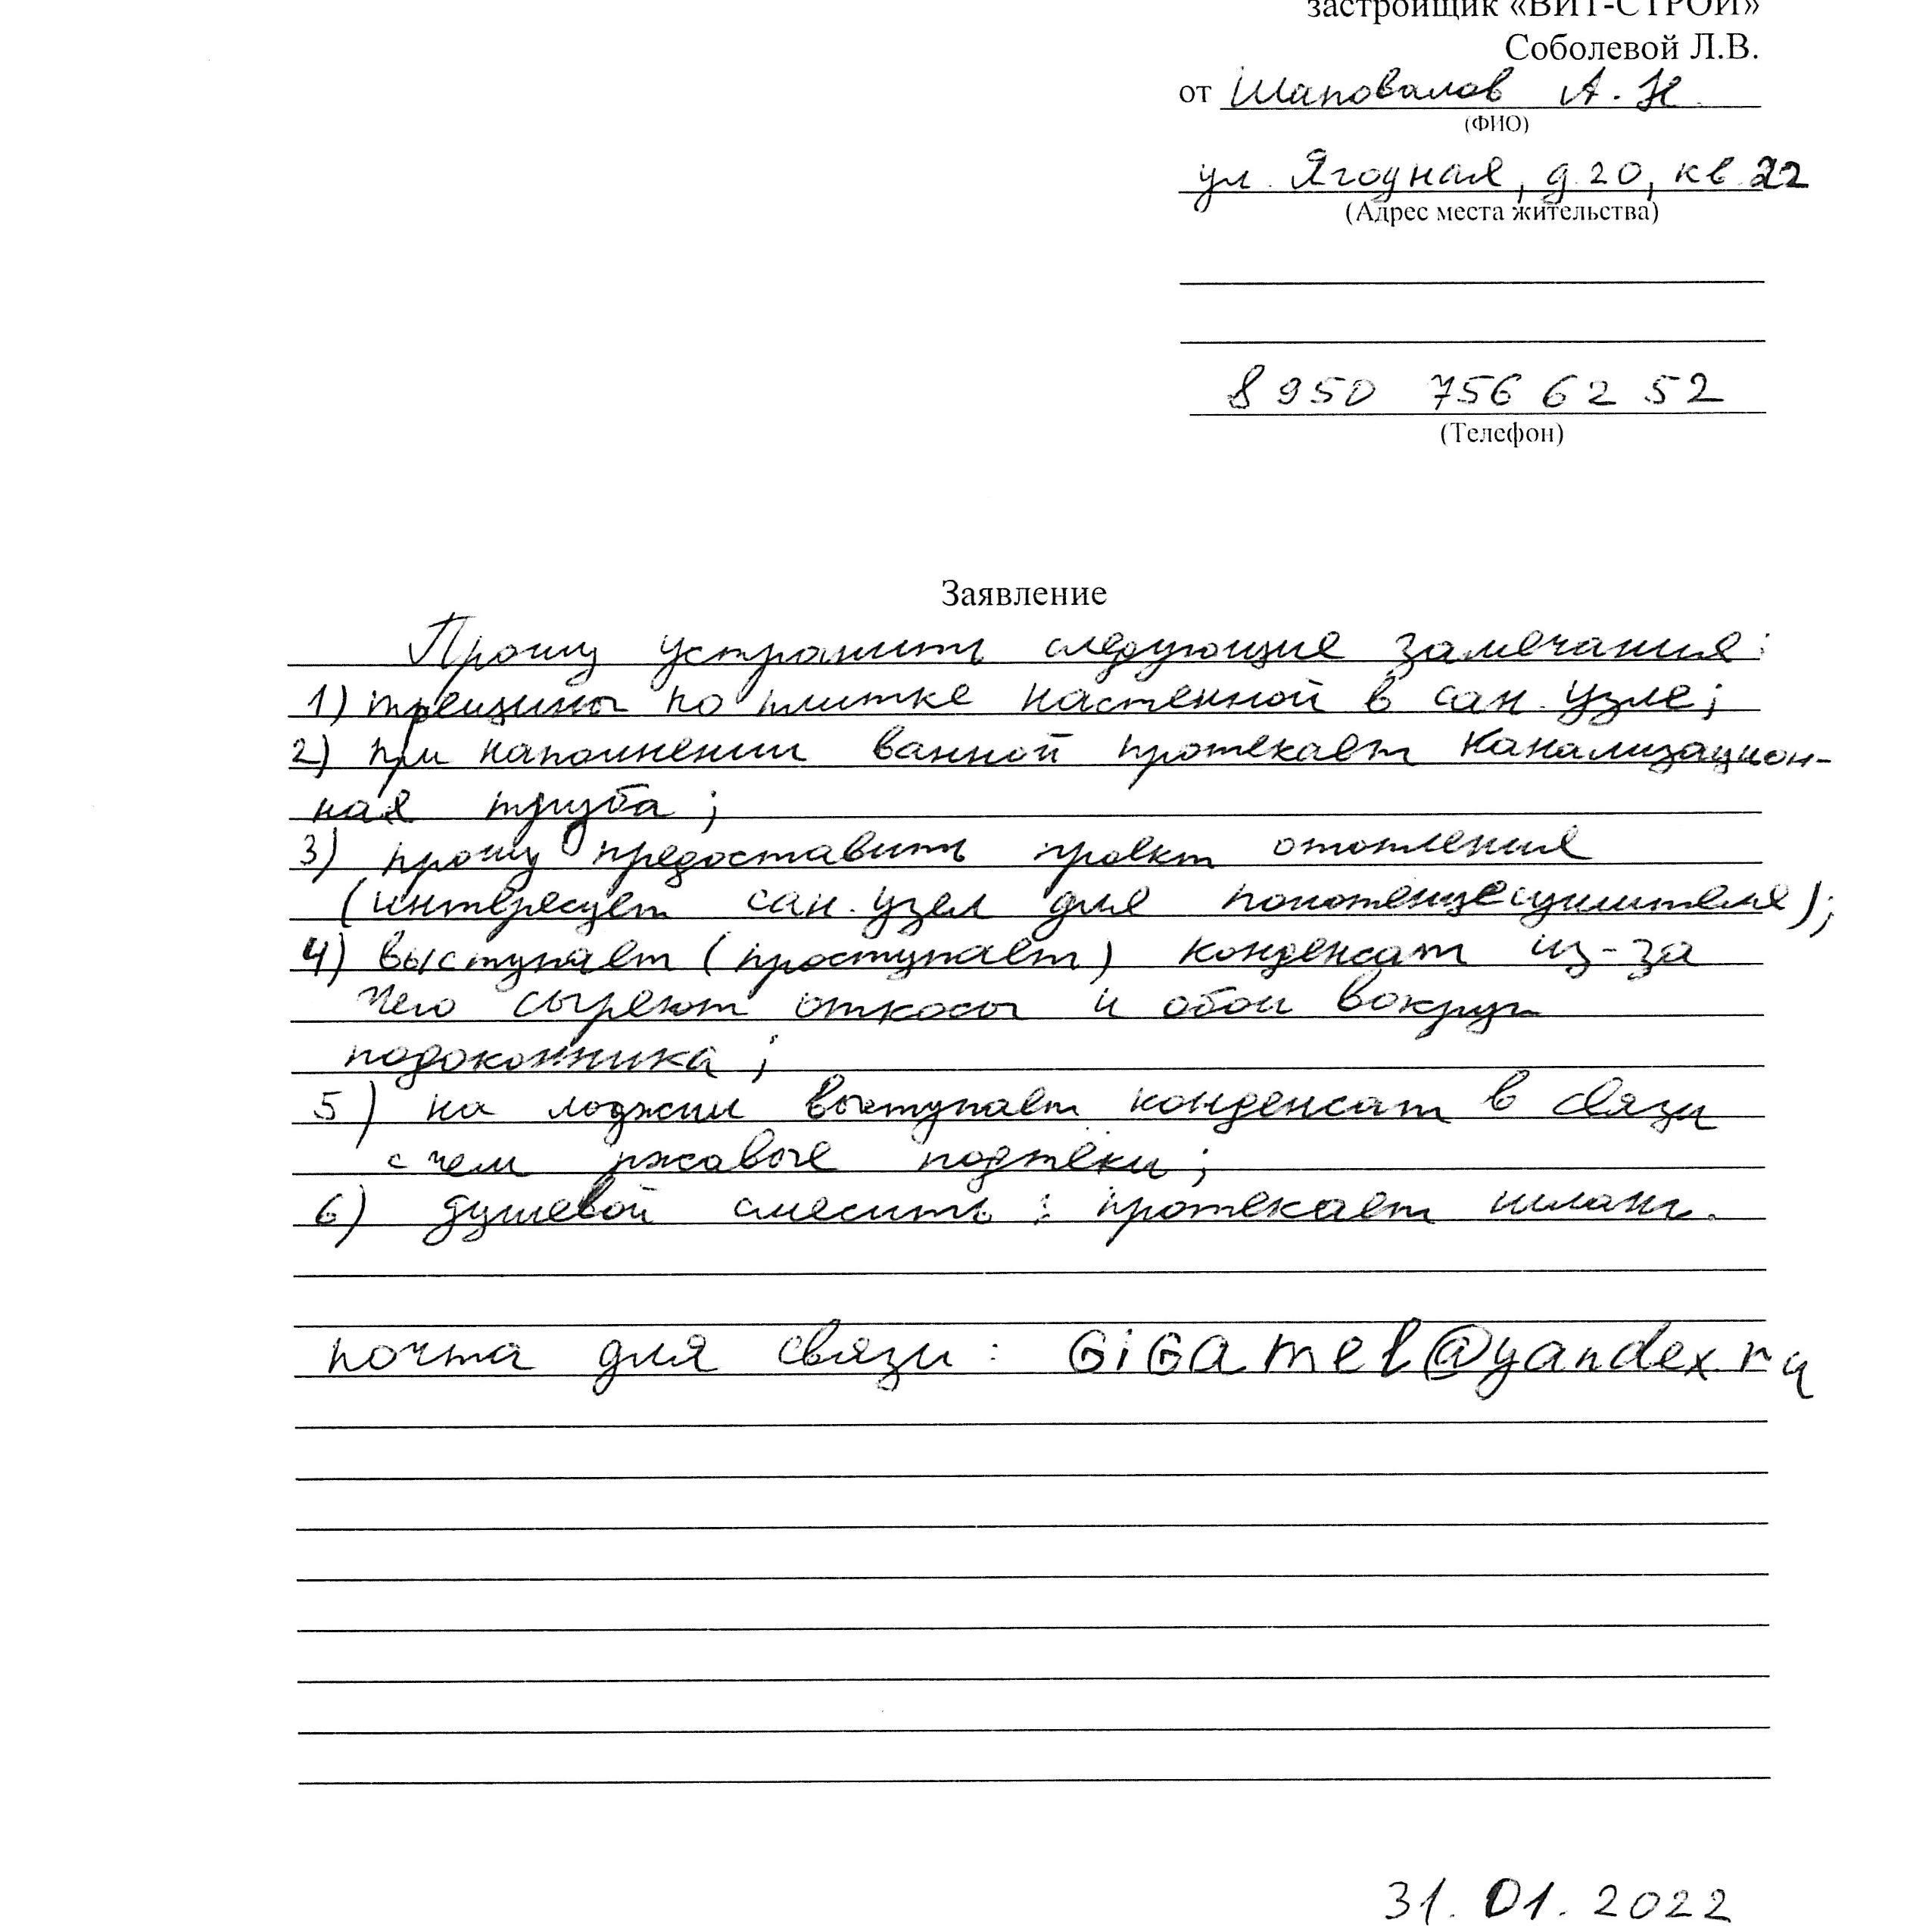 застройщик «ВИТ-СТРОЙ»
Соболевой Л.В.
от Шаповалов А.Н.
(ФИО)
ул. Ягодная, д.20, кв.22
(Адрес места жительства)
8 950 756 62 52
(Телефон)
Заявление
Прошу устранить следующие замечания:
1) трещины по плитке настенной в сан.узле;
2) при наполнении ванной протекает канализацион-
ная труба;
3) прошу предоставить проект отопления
(интересует сан.узел для полотенцесушителя);
4) выступает (проступает) конденсат из-за
чего сыреют откосы и обои вокруг
подоконника;
5) на лоджии выступает конденсат в связи
с чем ржавые подтёки;
6) душевой смесить : протекает шланг.
почта для связи: GiGamel@yandex.ru
31.01.2022